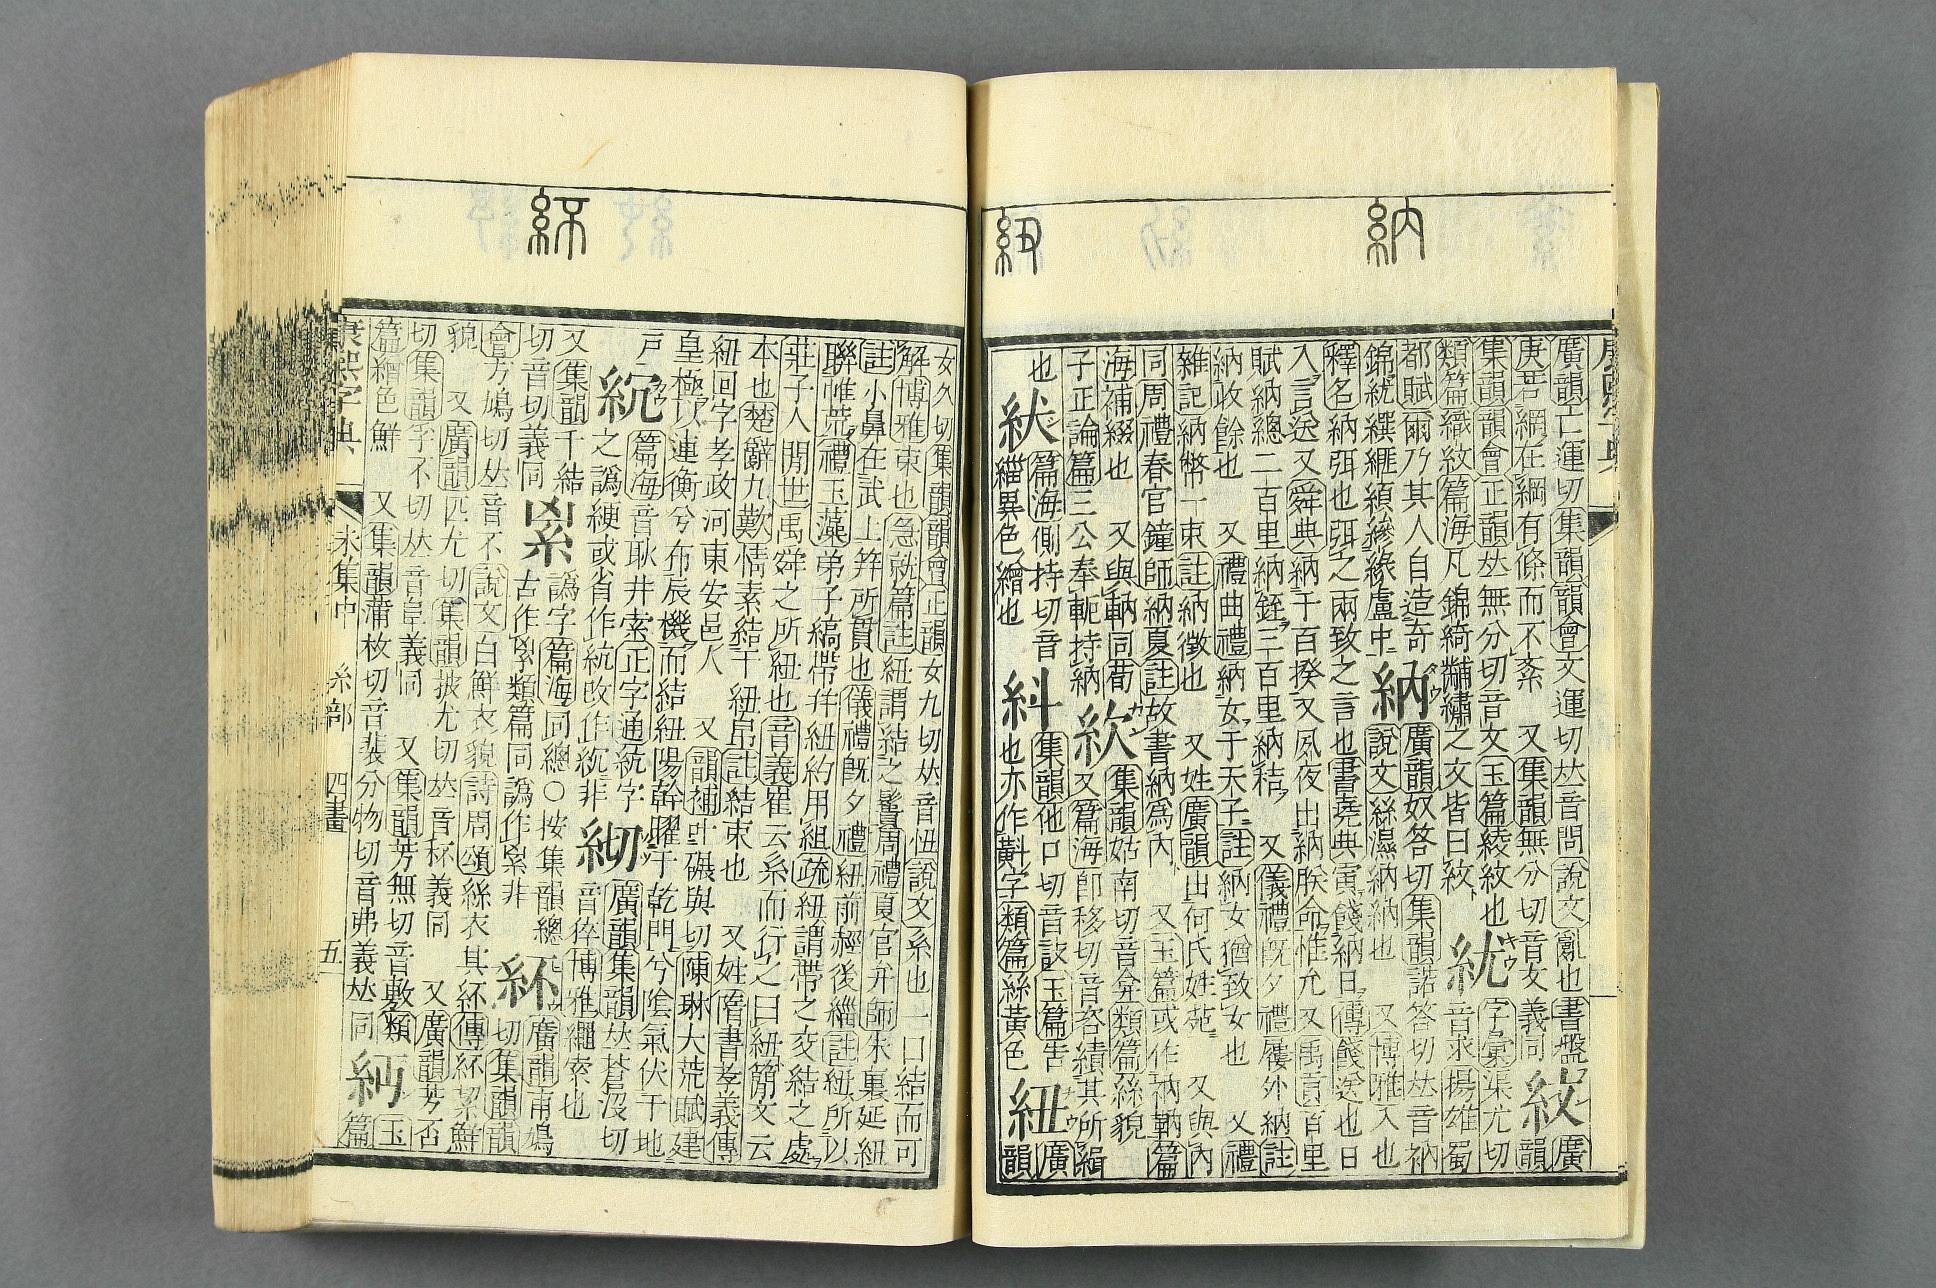 納
紐
廣韻亡運切集韻韻會文運切𠀤音問說文亂也書盤
紋
廣
庚若網在綱有條而不紊 又集韻無分切音文義同
韻
集韻韻會正韻𠀤無分切音文玉篇綾紋也
紌
字彙渠尤切
類篇織紋篇海凡錦綺黼繡之文皆曰紋
音求揚雄蜀
都賦爾乃其人自造奇
納
廣韻奴答切集韻諾答切𠀤音衲
錦紌縿緣盧中
說文絲濕納納也 又博雅入也
釋名納弭也弭弭之兩致之言也書堯典寅餞納日傳餞送也日
入言送又舜典納于百揆又夙夜出納朕命惟允 又禹貢百里
賦納總二百里納銍三百里納秸 又儀禮旣夕禮屨外納註
納收餘也 又禮曲禮納女于天子註納女猶致女也 又禮
雜記納幣一束註納徵也 又姓廣韻出何氏姓苑 又與內
同周禮春官鐘師納夏註故書納爲內 又玉篇或作衲靹篇
海補綴也 又與軜同荀
集韻姑南切音弇類篇絲貌
子正論篇三公奉軶持納
又篇海卽移切音咨績其所緝
也
篇海側持切音
紏
集韻他口切音 玉篇告
紐
廣
緇異色繒也
也亦作 字類篇絲黃色
韻
康熙字典 未集中 糸部 四畫 五
女久切集韻韻會正韻女九切𠀤音忸說文系也一曰結而可
解博雅束也急就篇註紐謂結之鬠周禮夏官弁師朱裏延紐
註小鼻在武上笄所貫也儀禮旣夕禮紐前䞓後緇註紐所以
聯帷荒禮玉藻弟子縞帶幷紐約用組疏紐謂帶之交結之處
莊子人閒世禹舜之所紐也音義崔云系而行之曰紐簡文云
本也楚辭九歎情素結于紐帛註結束也 又姓隋書孝義傳
紐回字孝政河東安邑人 又韻補叶碾與切陳琳大荒賦建
皇極以連衡兮布辰機而結紐陽幹曜于乾門兮陰氣伏于地
戸
篇海音耿井索正字通統字
廣韻集韻𠀤莟沒切
之譌綆或省作統改作 非
音 博雅繩索也
又集韻千結
譌字篇海同總○按集韻總
紑
廣韻甫鳩
切音切義同
古作 類篇同譌作 非
切集韻韻
會方鳩切𠀤音不說文白鮮衣貌詩周頌絲衣其紑傳紑絜鮮
貌 又廣韻匹尤切集韻披尤切𠀤音 義同 又廣韻芳否
切集韻孚不切𠀤音 義同 又集韻芳無切音敷類
玉
篇繒色鮮 又集韻蒲枚切音裴分物切音弗義𠀤同
篇